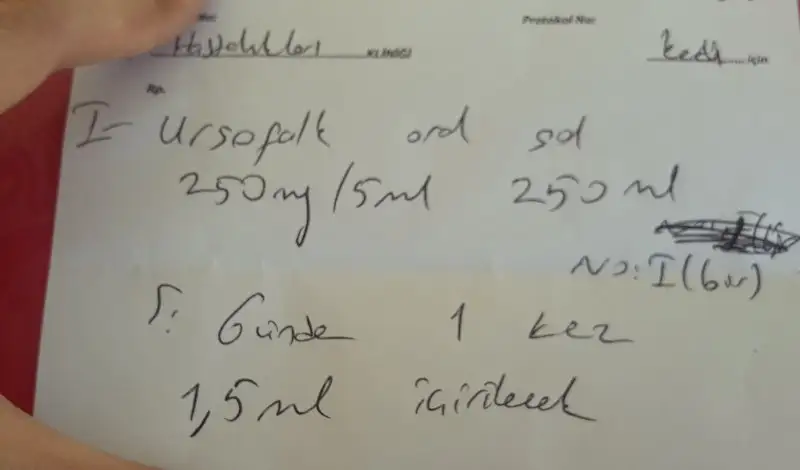 No: Protokol No:
Hastalıkları KLİNİĞİ Kedi.....için
Rp.
I- Ursofalk oral sol
250 mg/5ml 250 ml
No: I (bir)
S: Günde 1 kez
1,5 ml içirilecek